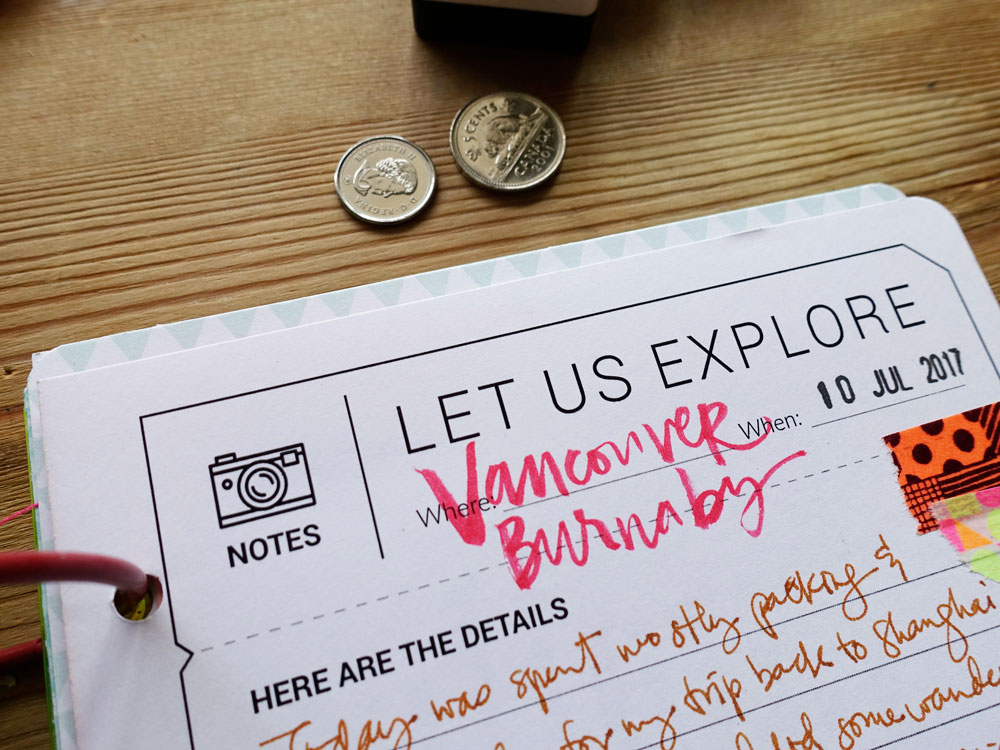 ELIZABETH II D·G·REGINA
5 CENTS
CANADA
2001
LET US EXPLORE
NOTES
Where: Vancouver When: 10 JUL 2017
Burnaby
HERE ARE THE DETAILS
Today was spent mostly packing &
for my trip back to Shanghai
some wande